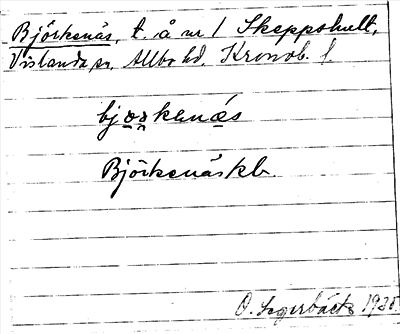 Björkenäs, t. å nr 1 Skeppshult,
Vislanda sn, Allbo hd, Kronob. l.
Björkenäs kb.
O. Segerbäck 1935.